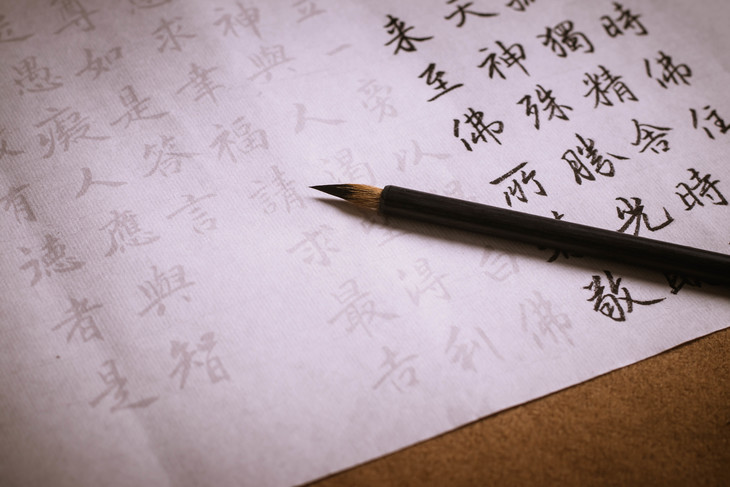 時佛住
獨精舍時
天神殊勝光
来至佛所敬
立一旁以白佛
神與人渴望得利
求幸福請求最吉
尊如是答言
愚癡人應與智
有德者是